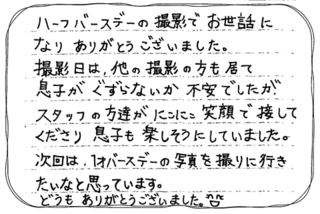 ハーフバースデーの撮影でお世話に
なりありがとうございました。
撮影日は、他の撮影の方も居て
息子がぐずらないか不安でしたが
スタッフの方達がにこにこ笑顔で接して
くださり息子も楽しそうにしていました。
次回は、1才バースデーの写真を撮りに行き
たいなと思っています。
どうもありがとうございました。